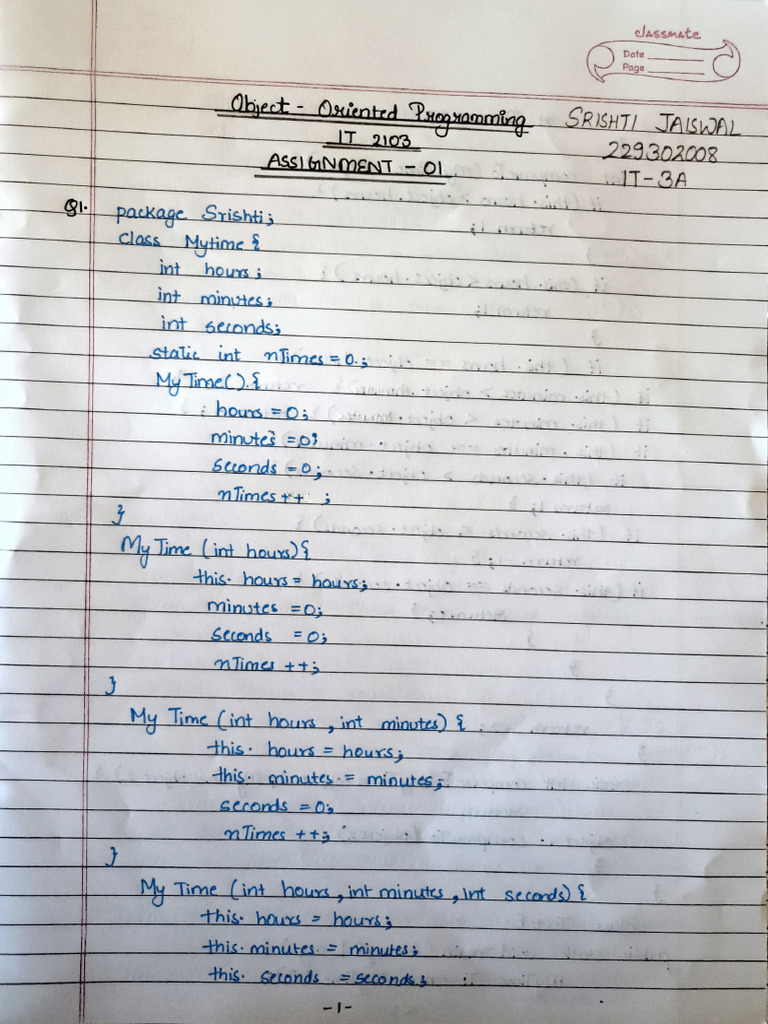 classmate
Date
Page
Object - Oriented Programming SRISHTI JAISWAL
IT 2103 229302008
ASSIGNMENT - 01 IT-3A
Q1. package Srishti;
class Mytime {
int hours;
int minutes;
int seconds;
static int nTimes = 0;
MyTime() {
hours = 0;
minutes = 0;
seconds = 0;
nTimes ++ ;
}
My Time (int hours) {
this. hours = hours;
minutes = 0;
seconds = 0;
nTimes ++;
}
My Time (int hours , int minutes) {
this. hours = hours;
this. minutes = minutes;
seconds = 0;
nTimes ++;
}
My Time (int hours , int minutes , int seconds) {
this. hours = hours;
this. minutes = minutes;
this. seconds = seconds;
-1-